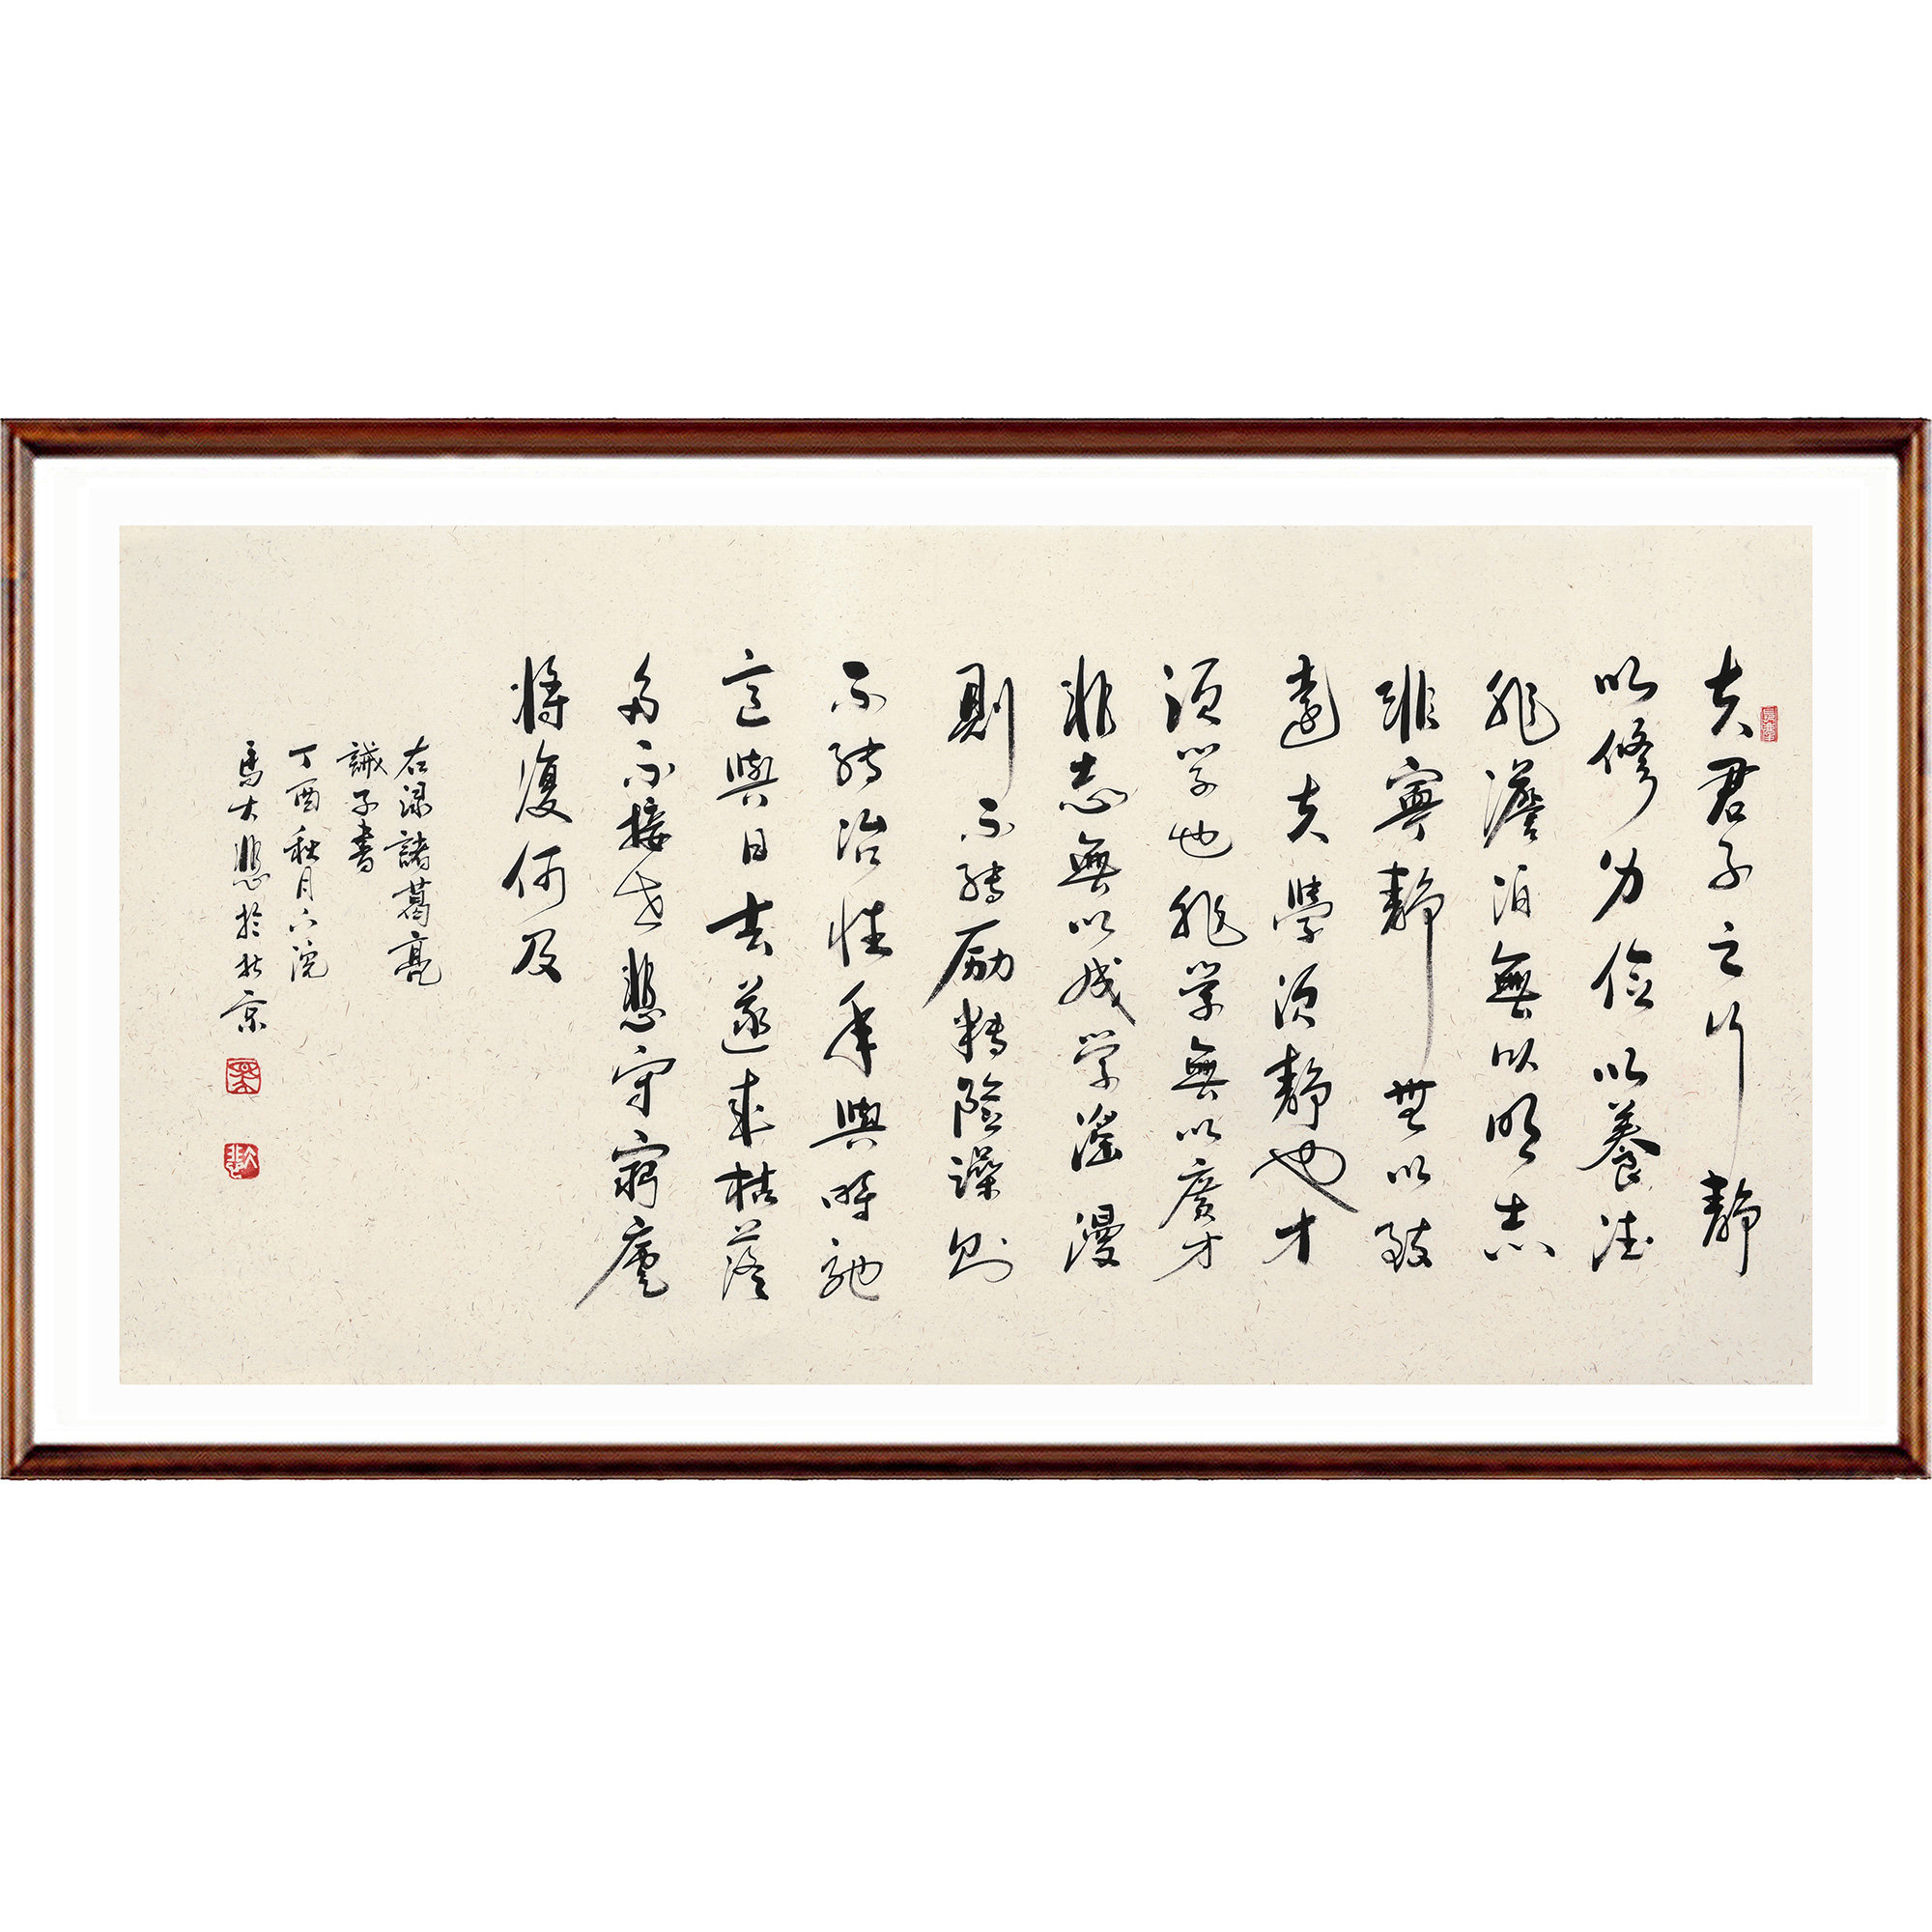 夫君子之行静
以修身儉以養德
非澹泊無以明志
非寧静無以致
遠夫學須静也才
須学也非学無以廣才
非志無以成学滛漫
則不能励精險躁則
不能治性年與時馳
意與日去遂成枯落
多不接世悲守窮廬
將復何及
右录諸葛亮
誡子書
丁酉秋月下浣
馬大悲於北京